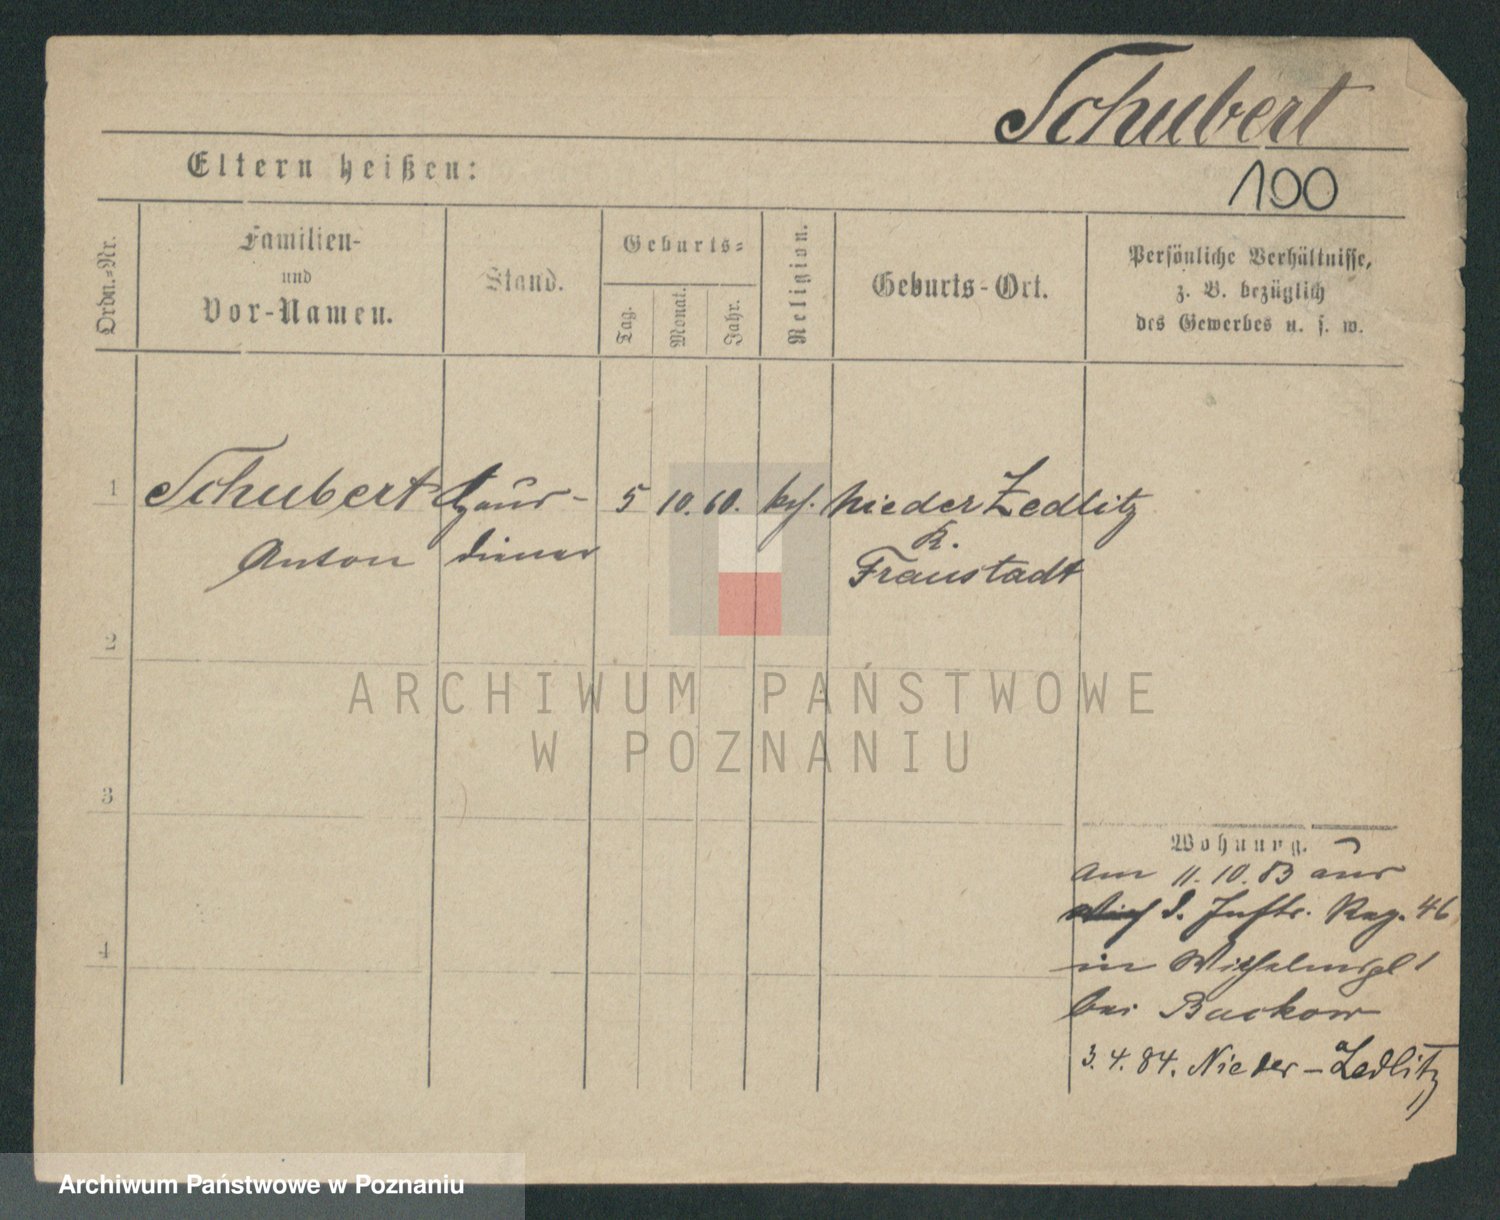 Schubert
Eltern heißen:
100
Ordn.-Nr.
Familien-
und
Vor-Namen.
Stand.
Geburts-
Tag.
Monat.
Jahr.
Religion.
Geburts-Ort.
Persönliche Verhältnisse,
z. B. bezüglich
des Gewerbes u. s. w.
1 Schubert Haus- 5 10. 60. Nieder Zedlitz
K.
Anton diener Fraustadt
2
ARCHIWUM PAŃSTWOWE
W POZNANIU
3
Wohnung.
am 11. 10. 83 aus
d. Inftr. Reg. 46
in
4
bei Backow
3. 4. 84. Nieder-Zedlitz
Archiwum Państwowe w Poznaniu